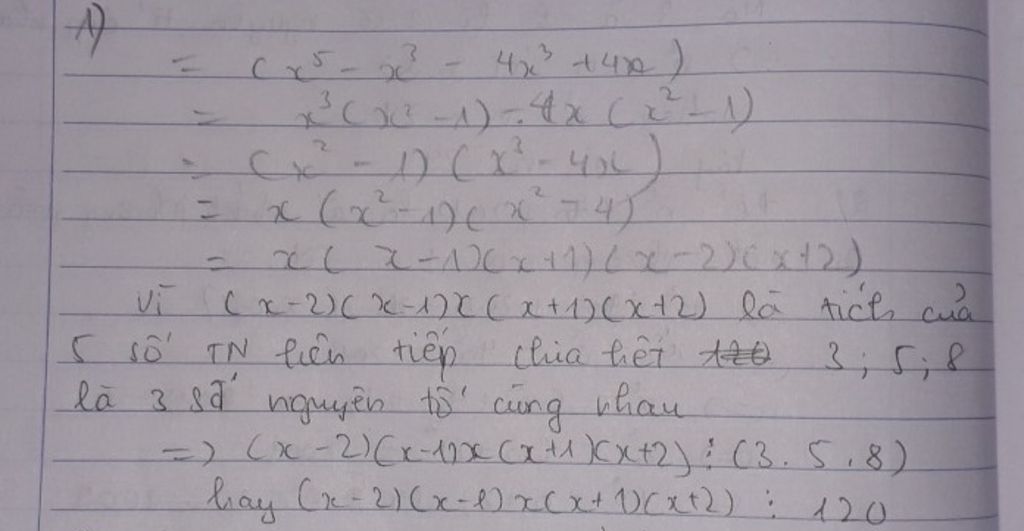 1)
= (x⁵ - x³ - 4x³ + 4x)
= x³(x² - 1) - 4x(x² - 1)
= (x² - 1)(x³ - 4x)
= x(x² - 1)(x² - 4)
= x(x - 1)(x + 1)(x - 2)(x + 2)
Vì (x - 2)(x - 1)x(x + 1)(x + 2) là tích của
5 số TN liên tiếp chia hết 3 ; 5 ; 8
là 3 số nguyên tố cùng nhau
=> (x - 2)(x - 1)x(x + 1)(x + 2) ⋮ (3. 5. 8)
hay (x - 2)(x - 1)x(x + 1)(x + 2) ⋮ 120